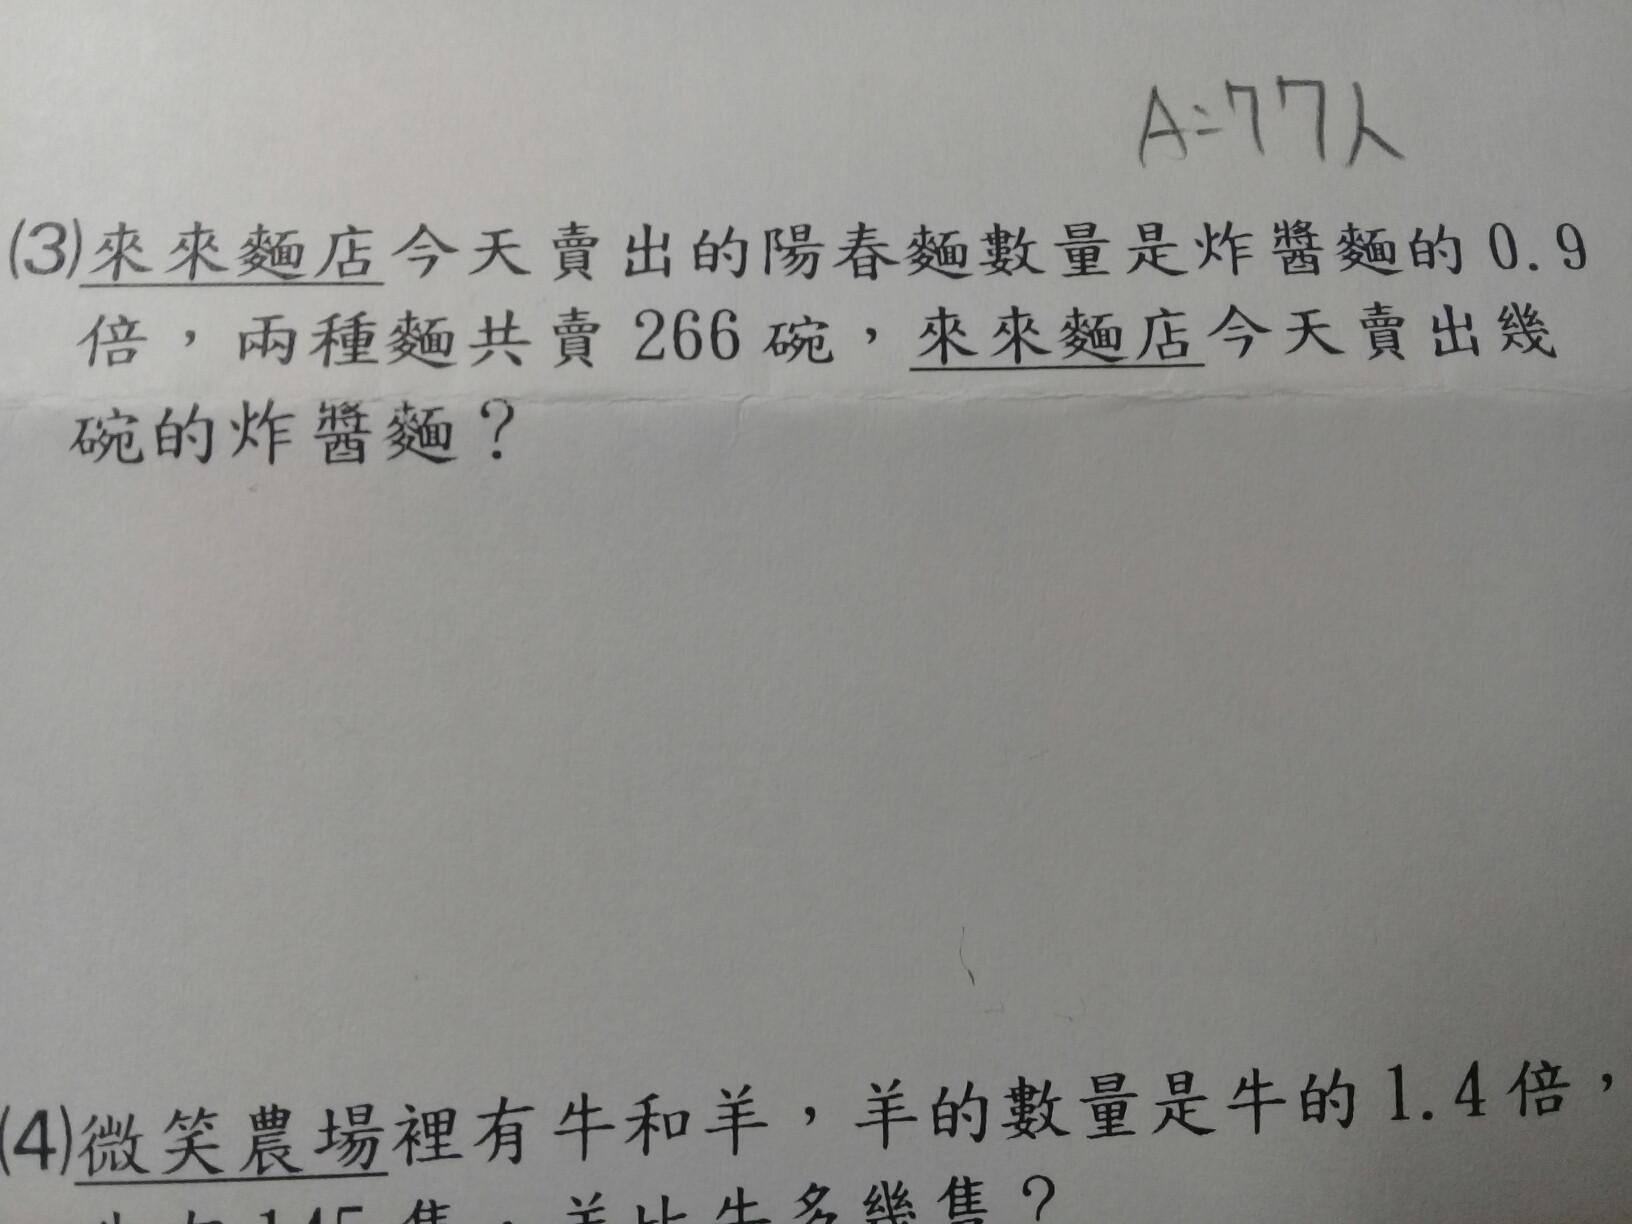 A:77人
(3)來來麵店今天賣出的陽春麵數量是炸醬麵的0.9
倍，兩種麵共賣266碗，來來麵店今天賣出幾
碗的炸醬麵？
(4)微笑農場裡有牛和羊，羊的數量是牛的1.4倍，
145隻，羊比牛多幾隻？